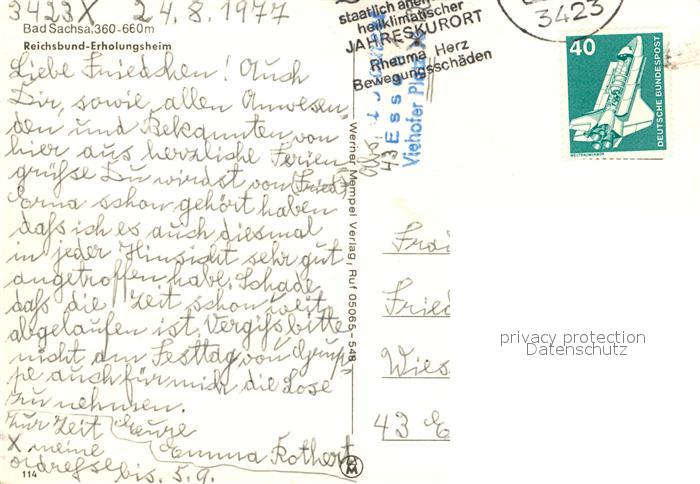 3423X 24.8.1977
Bad Sachsa. 360-660m
Reichsbund-Erholungsheim
Liebe Friedchen! Auch
Dir, sowie allen Anwesen,
den und Bekannten von
hier aus herzliche Ferien
grüße Du wirdst vom (Fried)
Erna schon gehört haben
daß ich es auch diesmal
in jeder Hinsicht sehr gut
angetroffen habe. Schade
daß die Zeit schon weit
abgelaufen ist. Vergiß bitte
nicht am Festtag von Grupp
pe auch für mich die Lose
zu nehmen.
Zur Zeit Eure
X meine Emma Rothert
Adresse bis. 5.9.
114
Werner Mempel Verlag, Ruf 05065-548
staatlich aner
heilklimatischer
JAHRESKURORT
Rheuma Herz
Bewegungsschäden
3423
43 Essen
Viehofer Platz
40
DEUTSCHE BUNDESPOST
WELTRAUMLABOR
Frau
Fried
Wies
43 E
privacy protection
Datenschutz